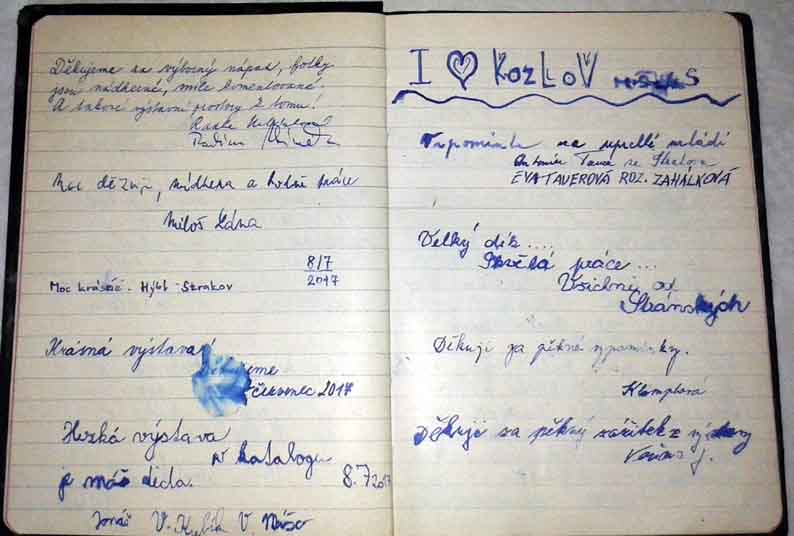 Děkujeme za výborný nápad, fotky
jsou nádherné, mile komentované.
A takové výstavní prostory k tomu!
Radim
Moc děkuji, nádhera a hodně práce
Miloš
8/7
2017
Moc krásné. Hýbl - Strakov
Krásná výstava!
Děkujeme
červenec 2017
Hezká výstava
v katalogu
je náš děda.
8.7 2017
Tomáš V. Kubík V.
I ♥ KozLoV
Vzpomínka na uprchlé mládí
Antonín
EVA TAUEROVÁ ROZ. ZAHÁLKOVÁ
Velký dík ....
Skvělá práce ...
Všichni od
Sbánských
Děkuji za pěkné vzpomínky.
Klomplová
Děkuji za pěkný zážitek z výstavy
J.